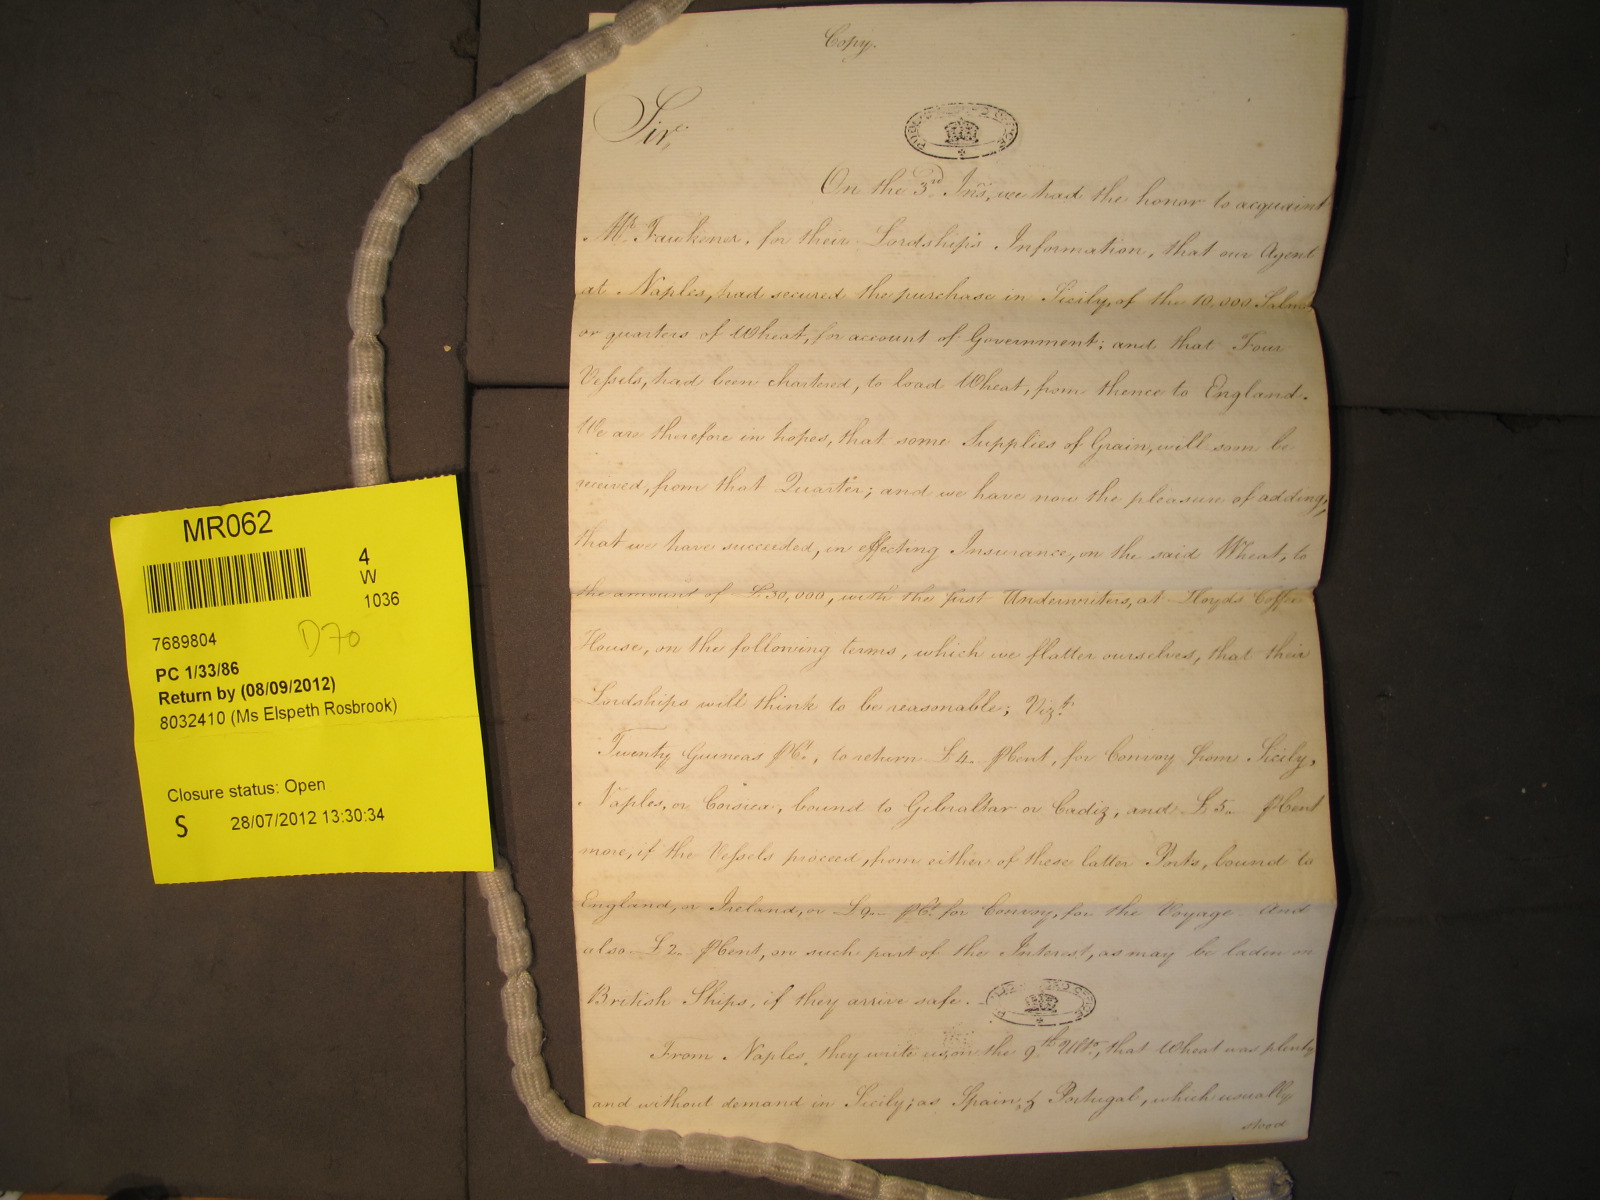 Copy.
Sir,
PUBLIC RECORD OFFICE
On the 3rd Inst, we had the honor to acquaint
Mr. Fawkener, for their Lordship's Information, that our Agent
at Naples, had secured the purchase in Sicily, of the 10,000 Salms
or quarters of Wheat, for account of Government; and that Four
Vessels, had been chartered, to load Wheat, from thence to England.
We are therefore in hopes, that some Supplies of Grain, will soon be
received, from that Quarter; and we have now the pleasure of adding,
that we have succeeded, in effecting Insurance, on the said Wheat, to
the amount of £30,000, with the first Underwriters, at Lloyds Coffee
House, on the following terms, which we flatter ourselves, that their
Lordships will think to be reasonable; Vizt.
Twenty Guineas ⅌ Ct., to return £4. ⅌ Cent, for Convoy from Sicily,
Naples, or Corsica, bound to Gibraltar or Cadiz, and £5. ⅌ Cent
more, if the Vessels proceed, from either of these latter Ports, bound to
England, or Ireland, or £9. ⅌ Ct. for Convoy, for the Voyage. And
also £2. ⅌ Cent, on such part of the Interest, as may be laden on
British Ships, if they arrive safe.
PUBLIC RECORD OFFICE
From Naples, they write us, on the 9th Ulto., that Wheat was plenty
and without demand in Sicily; as Spain, & Portugal, which usually
stood
MR062
4
W
1036
7689804
D70
PC 1/33/86
Return by (08/09/2012)
8032410 (Ms Elspeth Rosbrook)
Closure status: Open
S 28/07/2012 13:30:34